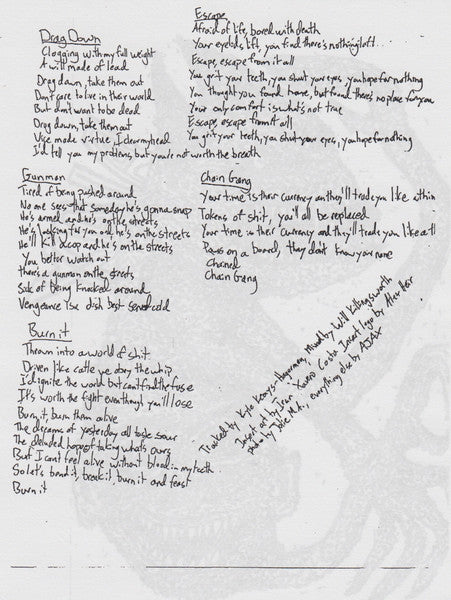 Drag Down
Clogging with my full weight
A will made of lead
Drag down, take them out
Don't care to live in their world
But don't want to be dead
Drag down, take them out
Vice made virtue, I clear my head
I'd tell you my problems, but you're not worth the breath
Escape
Afraid of life, bored with death
Your eyelids lift, you find there's nothing left
Escape, escape from it all
You grit your teeth, you shut your eyes, you hope for nothing
You thought you found home, but found there's no place for you
Your only comfort is what's not true
Escape, escape from it all
You grit your teeth, you shut your eyes, you hope for nothing
Gunman
Tired of being pushed around
No one sees that someday he's gonna snap
He's armed and he's on the streets
He's looking for you and he's on the streets
He'll kill a cop and he's on the streets
You better watch out
there's a gunman on the streets
Sick of being knocked around
Vengeance is a dish best served cold
Chain Gang
Your time is their currency and they'll trade you like
Tokens of shit, you'll all be replaced
Your time is their currency and they'll trade you like
Pawns on a board, they don't know your name
Chained
Chain Gang
Burn it
Thrown into a world of shit
Driven like cattle we obey the whip
I'd ignite the world but can't find the fuse
It's worth the fight even though you'll lose
Burn it, burn them alive
The dreams of yesterday all taste sour
The deluded hope of taking what's ours
But I can't feel alive without blood in my teeth
So let's bend it, break it, burn it and feast
Burn it
Tracked by Kyle, Mixed by Will Killingsworth
Insert art by Costa Insert logo by Alex
photo by Julie M., everything else by AJAX